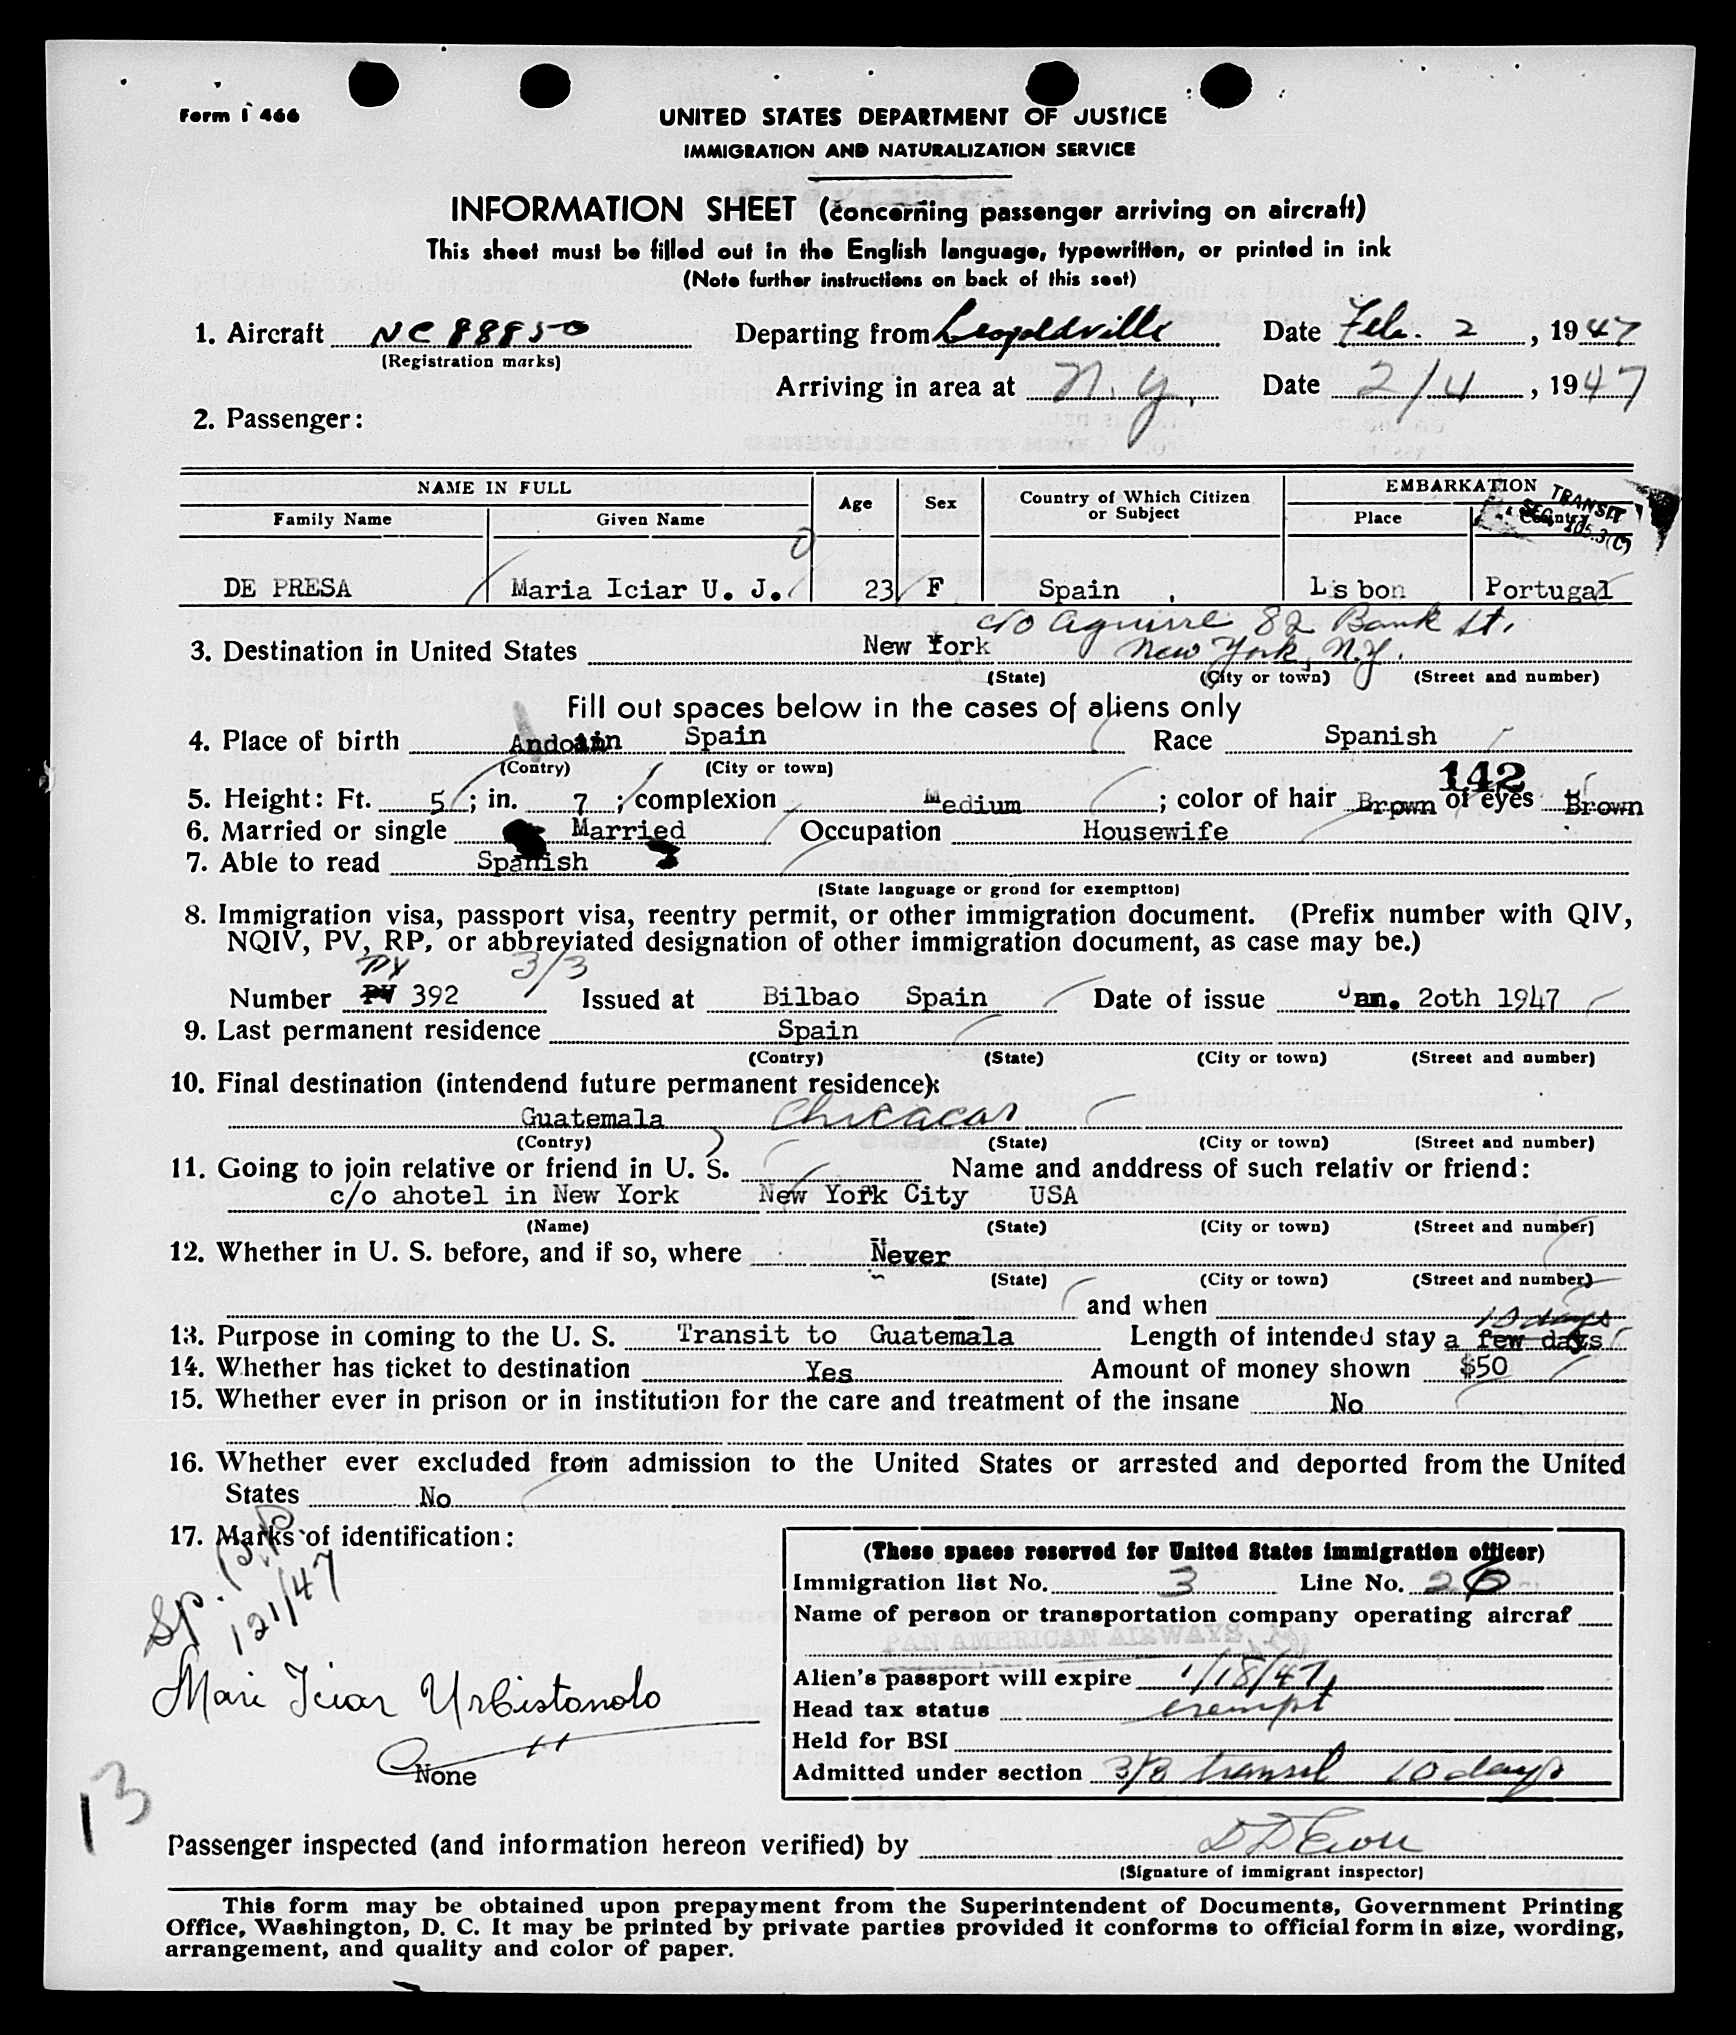 Form I 466
UNITED STATES DEPARTMENT OF JUSTICE
IMMIGRATION AND NATURALIZATION SERVICE
INFORMATION SHEET (concerning passenger arriving on aircraft)
This sheet must be filled out in the English language, typewritten, or printed in ink
(Note further instructions on back of this seet)
1. Aircraft NC 88850 Departing from Leopoldville Date Feb. 2, 1947
(Registration marks)
Arriving in area at N.Y. Date 2/4, 1947
2. Passenger:
NAME IN FULL Age Sex Country of Which Citizen or Subject EMBARKATION
Family Name Given Name Place Country
TRANSIT
SEC. 105.3(C)
DE PRESA Maria Iciar U. J. 23 F Spain Lisbon Portugal
c/o Aguirre 82 Bank St.
3. Destination in United States New York New York, N.Y.
(State) (City or town) (Street and number)
Fill out spaces below in the cases of aliens only
4. Place of birth Andoain Spain Race Spanish
(Contry) (City or town)
142
5. Height: Ft. 5; in. 7; complexion Medium; color of hair Brown of eyes Brown
6. Married or single Married Occupation Housewife
7. Able to read Spanish
(State language or grond for exemptton)
8. Immigration visa, passport visa, reentry permit, or other immigration document. (Prefix number with QIV,
NQIV, PV, RP, or abbreviated designation of other immigration document, as case may be.)
3/3
Number PV 392 Issued at Bilbao Spain Date of issue Jan. 2oth 1947
9. Last permanent residence Spain
(Contry) (State) (City or town) (Street and number)
10. Final destination (intendend future permanent residence):
Guatemala Chicacao
(Contry) (State) (City or town) (Street and number)
11. Going to join relative or friend in U. S. Name and anddress of such relativ or friend:
c/o ahotel in New York New York City USA
(Name) (State) (City or town) (Street and number)
12. Whether in U. S. before, and if so, where Never
(State) (City or town) (Street and number)
and when
10 days
13. Purpose in coming to the U. S. Transit to Guatemala Length of intended stay a few days
14. Whether has ticket to destination Yes Amount of money shown $50
15. Whether ever in prison or in institution for the care and treatment of the insane No
16. Whether ever excluded from admission to the United States or arrested and deported from the United
States No
17. Marks of identification:
Sp.
121/47
Mari Iciar Urbistondo
None
13
(These spaces reserved for United States immigration officer)
Immigration list No. 3 Line No. 26
Name of person or transportation company operating aircraf
PAN AMERICAN AIRWAYS
Alien's passport will expire 1/18/47
Head tax status exempt
Held for BSI
Admitted under section 3/3 transit 10 days
Passenger inspected (and information hereon verified) by
(Signature of immigrant inspector)
This form may be obtained upon prepayment from the Superintendent of Documents, Government Printing
Office, Washington, D. C. It may be printed by private parties provided it conforms to official form in size, wording,
arrangement, and quality and color of paper.